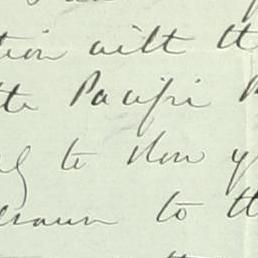 tion with th
the Pacific
to show y
drawn to th